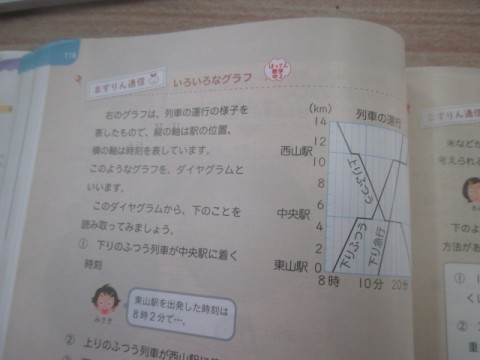 116
ますりん通信
いろいろなグラフ
はってん
右のグラフは、列車の運行の様子を
表したもので、縦の軸は駅の位置、
横の軸は時刻を表しています。
このようなグラフを、ダイヤグラムと
いいます。
このダイヤグラムから、下のことを
読み取ってみましょう。
① 下りのふつう列車が中央駅に着く
時刻
東山駅を出発した時刻は
8時2分で…。
みさき
② 上りのふつう列車が西山駅に
(km)
列車の運行
14
12
西山駅
10
8
6
中央駅
4
2
東山駅
0
8時
10分
20分
上りふつう
下りふつう
下り急行
ますりん通信
水などが
考えられる
下のよ
方法があ
①
②